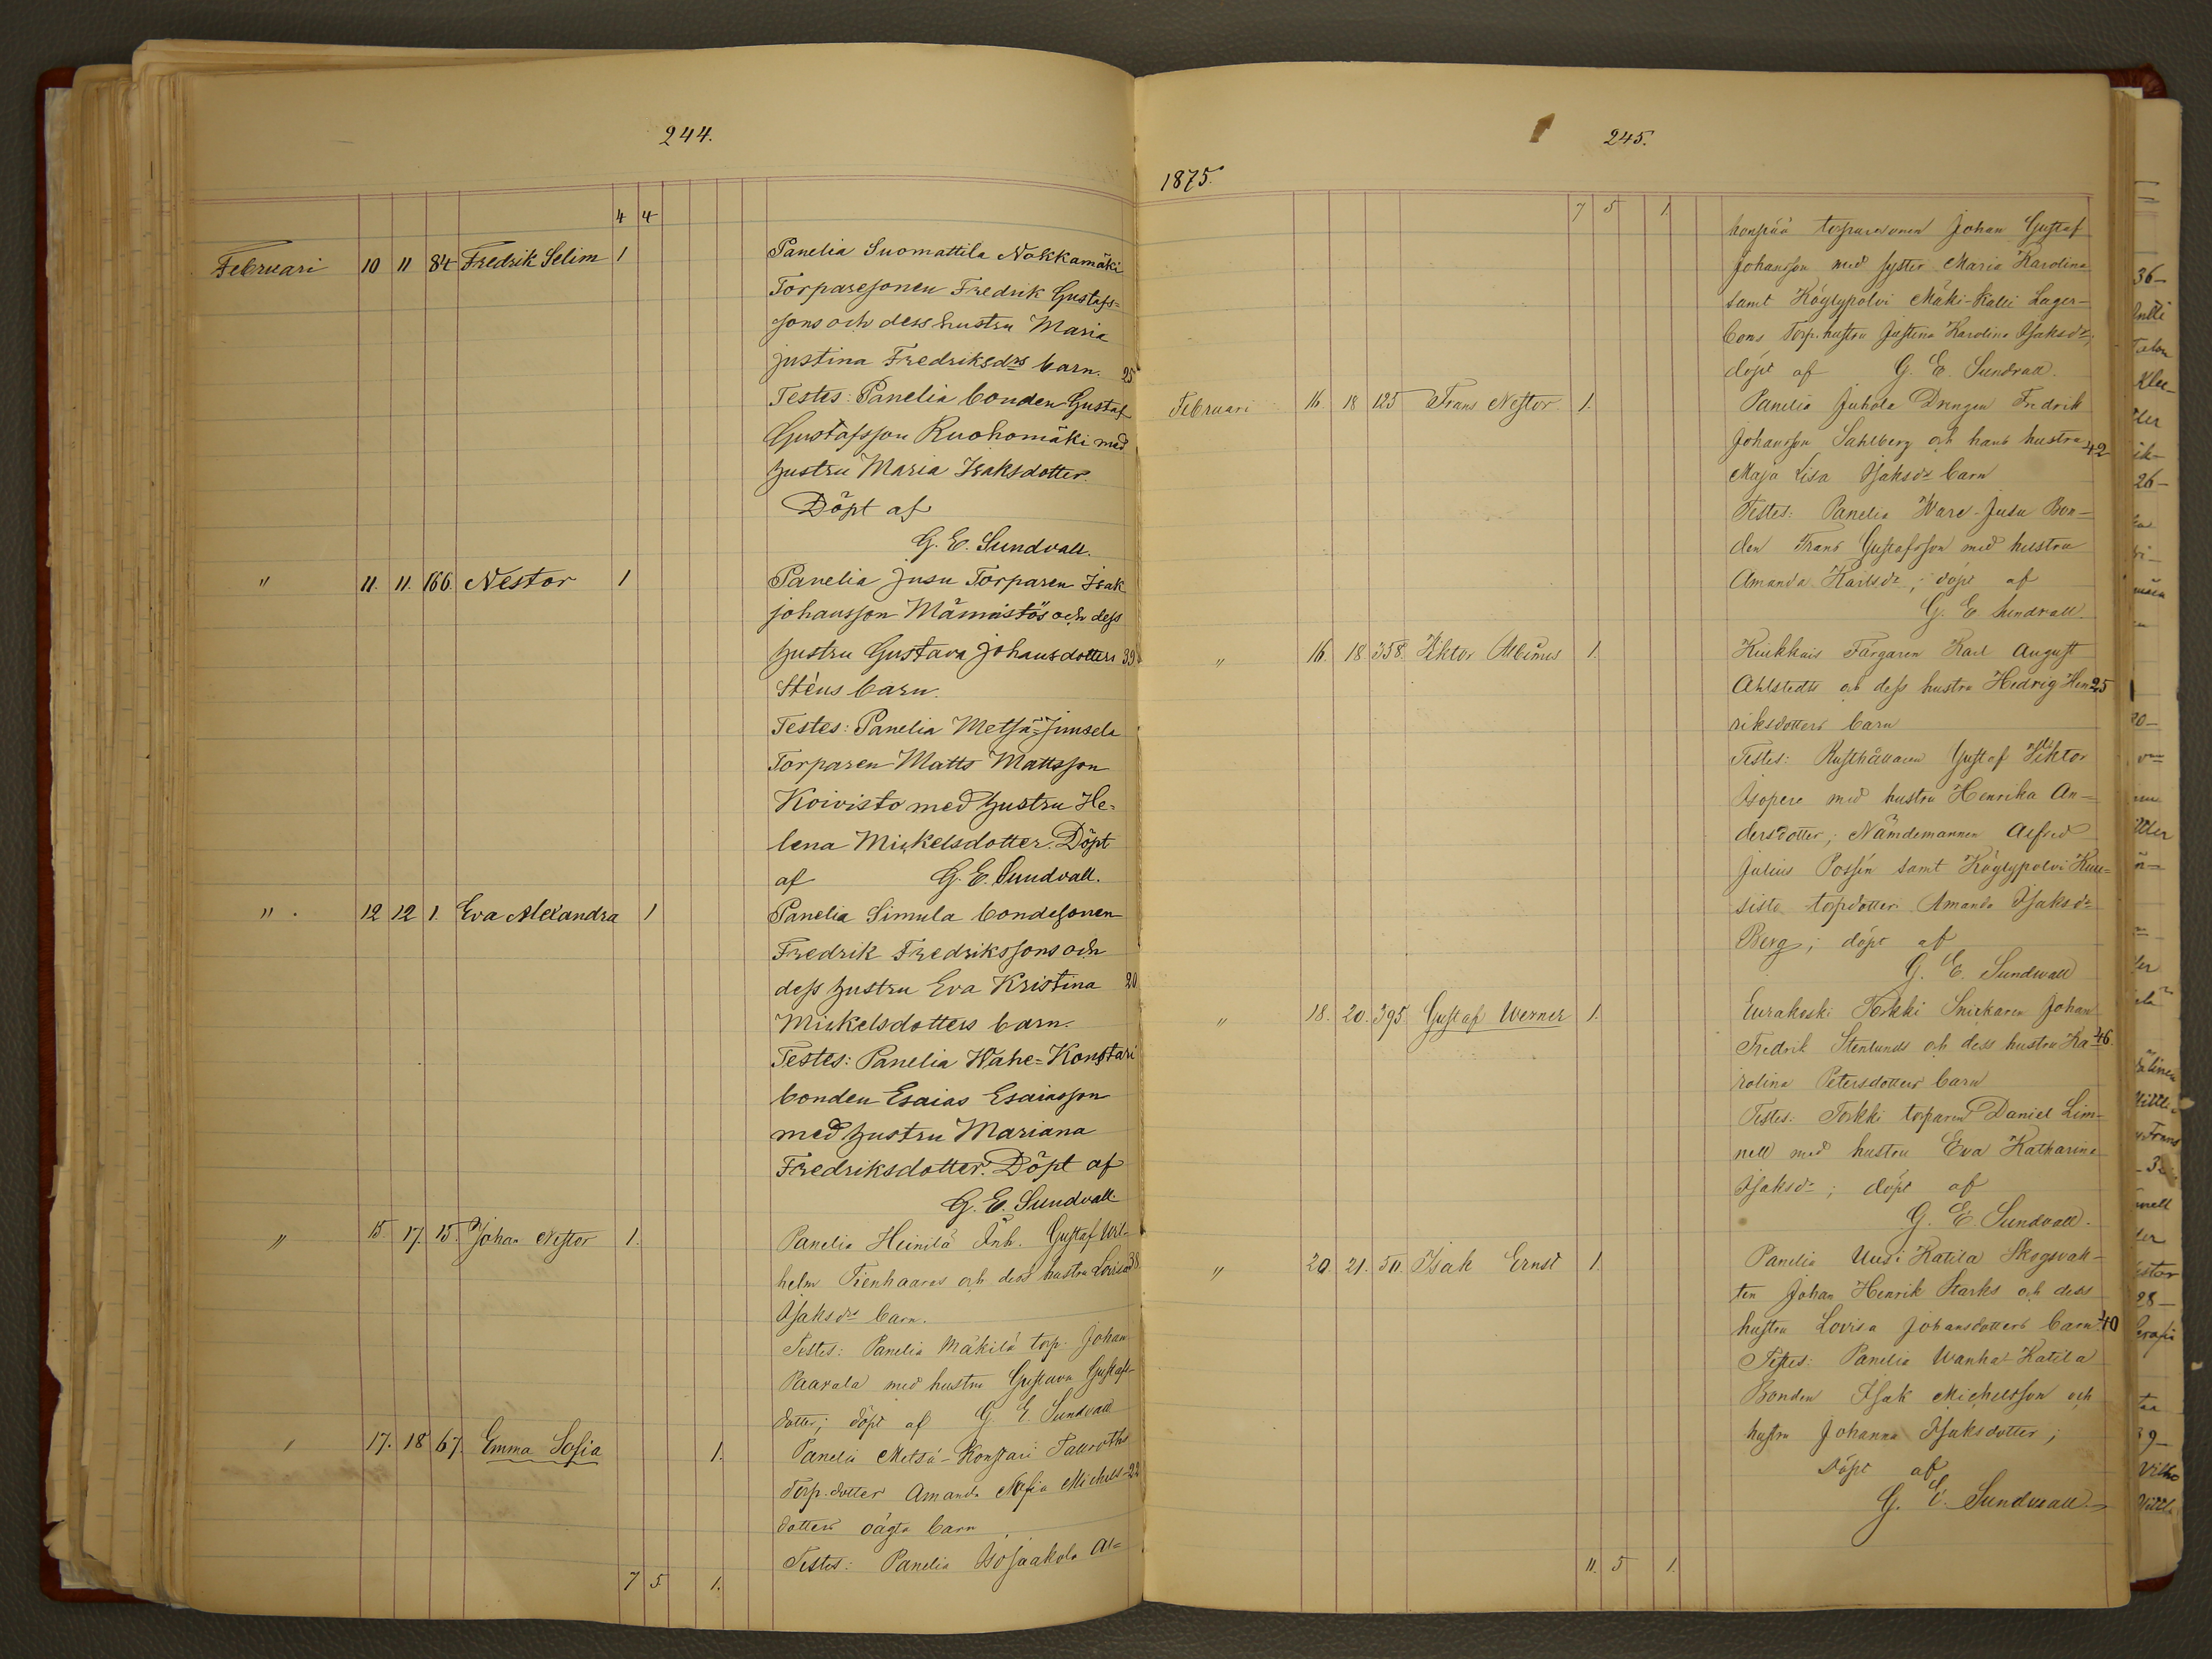 244.
4 4
Februari 10 11 84 Fredrik Selim 1 Panelia Suomattila Nokkamäki
Torparesonen Fredrik Gustafs-
sons och dess hustru Maria
Justina Fredriksdrs barn. 25
Testes: Panelia bonden Gustaf
Gustafsson Ruohomäki med
hustru Maria Isaksdotter.
Döpt af
G. E. Sundvall.
" 11. 11. 166. Nestor 1 Panelia Jusu Torparen Isak
Johansson Männistös och dess
hustru Gustava Johansdotters 39
Sténs barn.
Testes: Panelia Metsä-Junsela
Torparen Matts Mattsson
Koivisto med hustru He-
lena Mickelsdotter. Döpt
af G. E. Sundvall.
" 12 12 1. Eva Alexandra 1 Panelia Simula bondesonen
Fredrik Fredrikssons och
dess hustru Eva Kristina 20
Mickelsdotters barn.
Testes: Panelia Wahe-Konstari
bonden Esaias Esaiasson
med hustru Mariana
Fredriksdotter. Döpt af
G. E. Sundvall.
" 15. 17. 15. Johan Nestor 1. Panelia Heinilä Inh. Gustaf Wil-
helm Tienhaaras och dess hustru Lovisa 38
Isaksdrs barn.
Testes: Panelia Mäkilä torp. Johan
Paavala med hustru Gustava Gustafs-
dotter; döpt af G. E. Sundvall
" 17. 18 67. Emma Sofia 1. Panelia Metsä-Konstari Tauroths
Torp.dotter Amanda Sofia Michels- 22
dotters oägta barn
Testes: Panelia Isojaakola Al-
7 5. 1.
245.
1875.
7 5 1
honpää torparesonen Johan Gustaf
Johansson med syster Maria Karolina
samt Köylypolvi Mäki-Kalli Lager-
boms Torp.hustru Justina Karolina Isaksdr;
döpt af G. E. Sundvall.
Februari 16. 18 125 Frans Nestor 1. Panelia Juhola Drengen Fredrik
Johansson Sahlberg och hans hustru 42
Maja Lisa Isaksdrs barn
Testes: Panelia Ware-Jusu Bon-
den Frans Gustafsson med hustru
Amanda Karlsdr; döpt af
G. E. Sundvall.
" 16. 18. 358. Viktor Albinus 1. Kiukkais Färgaren Karl August
Ahlstedts och dess hustru Hedvig Hen 25
riksdotters barn
Testes: Rusthållaren Gustaf Viktor
Isopere med hustru Henrika An-
dersdotter; Nämdemannen Alfred
Julius Possén samt Köylypolvi Kuu-
sisto torpdotter Amanda Isaksdr
Berg; döpt af
G. E. Sundwall
" 18. 20. 395 Gustaf Werner 1. Eurakoski Torkki Snickaren Johan
Fredrik Stenlunds och dess hustru Ka- 46.
rolina Petersdotters barn
Testes: Torkki torparen Daniel Lim-
nell med hustru Eva Katharina
Isaksdr; döpt af
G. E. Sundvall.
" 20. 21. 50. Isak Ernst 1. Panelia Uusi Katila Skogsvak-
ten Johan Henrik Starks och dess
hustru Lovisa Johansdotters barn. 40
Testes: Panelia Wanha-Katila
Bonden Isak Michelsson och
hustru Johanna Isaksdotter;
döpt af
G. E. Sundwall
11. 5 1.